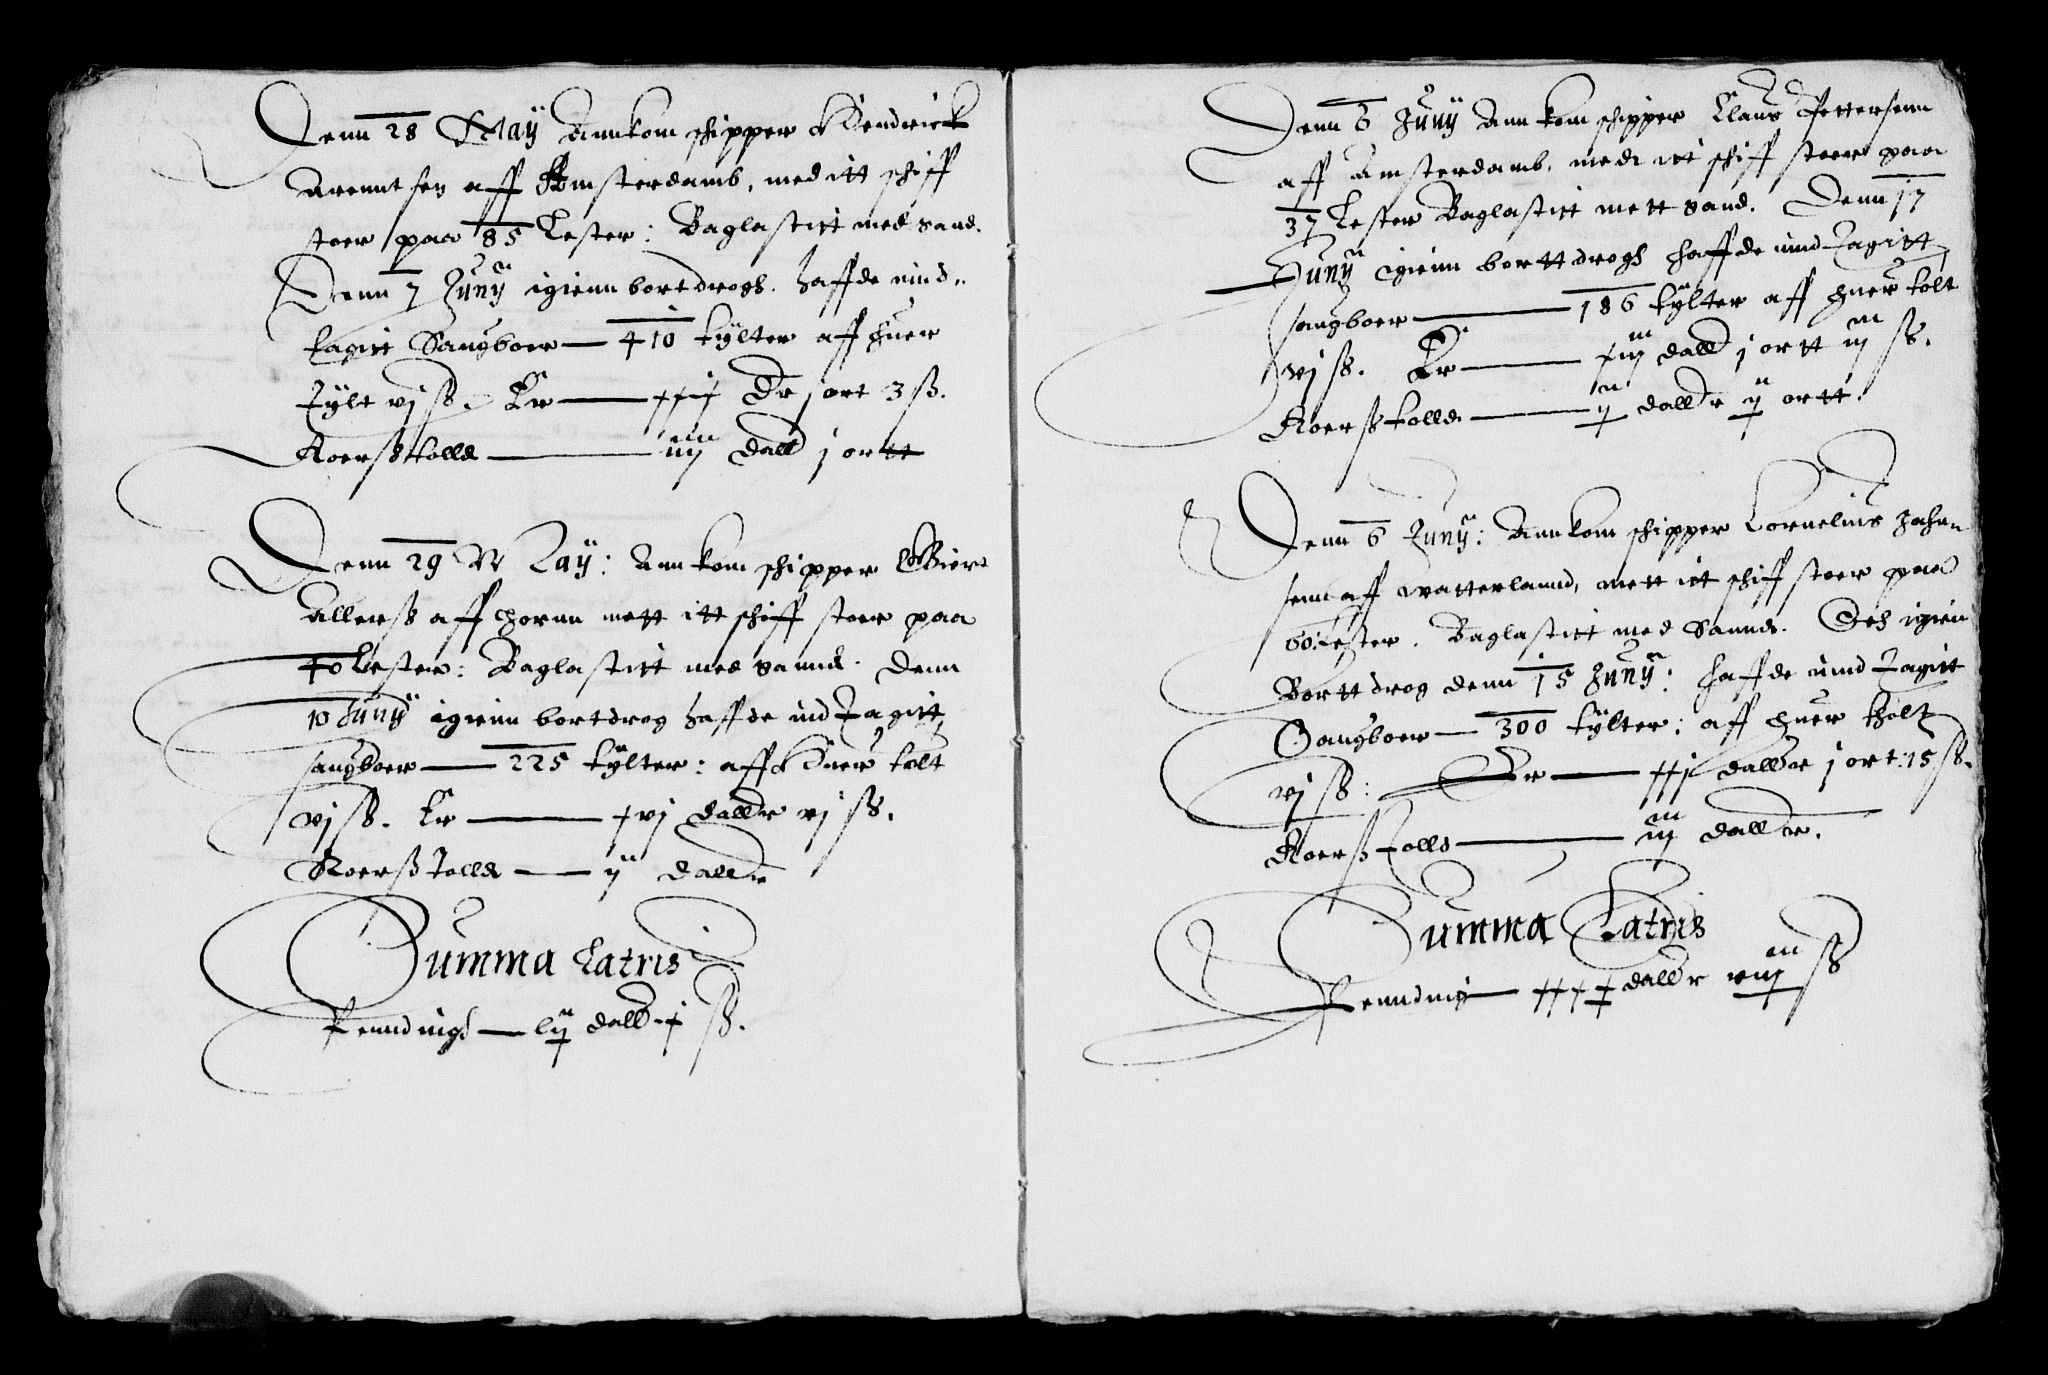 Denn 28 May Annkom schipper Hendrick
Arenntsen aff Amsterdamb, med itt schiff
stoer paa 85 Lester: Baglastitt med sand.
Denn 7 Juny igienn bortdrogh. haffde innd„
tagitt Saugboer — 410 tÿlter aff huer
tÿlt vj ß. Er — xxix Dr j ort 3 ß.
Roerßtolld — iiij dall j ortt
Denn 29 May: Annkom schipper Giert
Allerß aff Hornn mett itt schiff stoer paa
40 Lester: Baglastitt med sannd. Denn
10 Juny igienn bortdrog haffde ind tagitt
saugboer — 225 tÿlter: aff huer tolt
vj ß. Er — xvj dallr vj ß.
Roerßtolld — ij dallr
Summa Latris
Penndingh — lij dall x ß.
Denn 6 Juny Annkom schipper Claus Pettersenn
aff Amsterdamb. medt itt schiff stoer paa
37 Lester Baglastitt mett sand. Denn 17
Juny igienn bortt drogh haffde innd tagitt
saugboer — 186 tÿlter aff huer tolt
vj ß. Er — xiij dall j ortt iij ß.
Roerßtolld — ij dallr ij ortt.
Denn 6 Juny: Annkom schipper Cornelius Johann
senn aff Watterlannd, mett itt schiff stoer paa
60 Lester. Baglastitt med Sannd. Och igien
Bortt drog denn 15 Juny: haffde innd tagitt
Saugboer — 300 tÿlter: aff huer tholt
vj ß: Er — xxj dallr j ort: 15 ß.
Roerßtolld — iij dallr.
Summa Latris
Penndingh — xxxx dallr viij ß